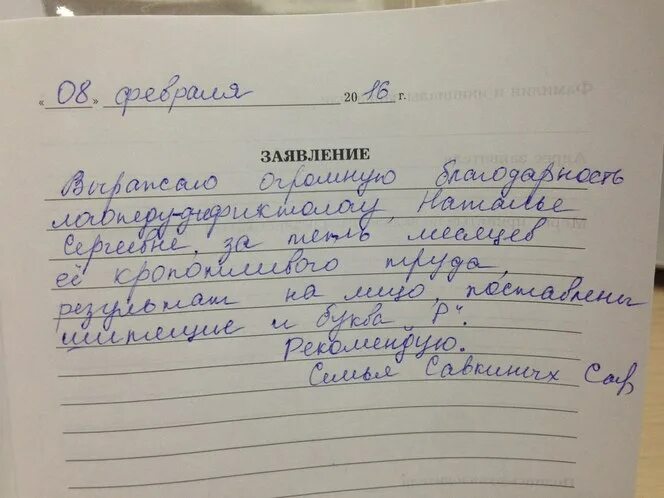 « 08 » февраля 2016 г.
ЗАЯВЛЕНИЕ
Выражаю огромную благодарность
логопеду-дификтологу, Наталье
Сергеевне, за пять месяцев
её кропотливого труда,
результат на лицо, поставлены
шипящие и буква "Р".
Рекомендую.
Семья Савкиных